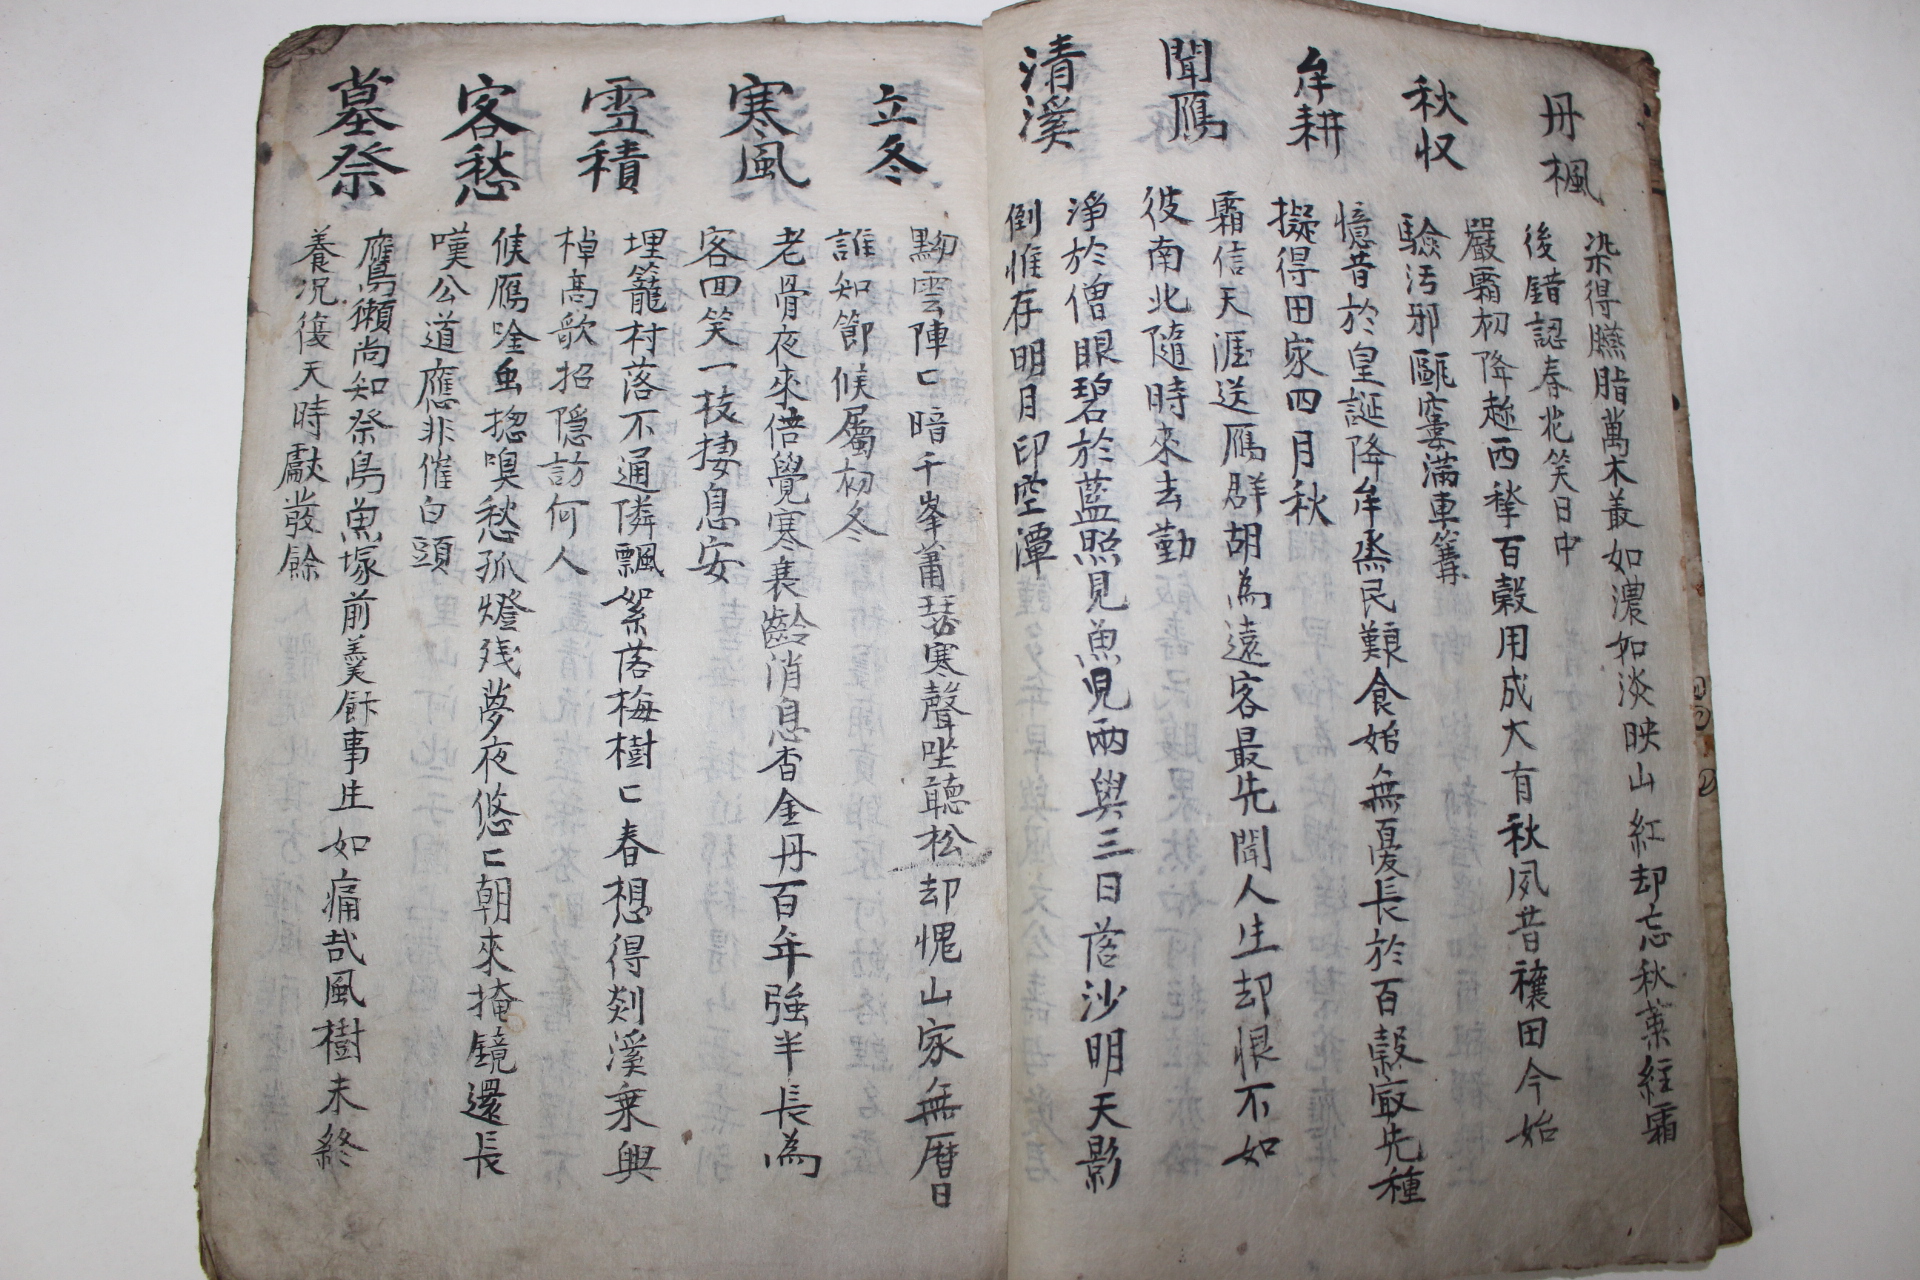 丹楓
染得臙脂萬木叢如濃如淡映山紅却忘秋葉經霜
後錯認春花笑日中
秋収
嚴霜初降趂西挙百穀用成大有秋夙昔穰田今始
驗汚邪甌窶滿車篝
牟耕
憶昔於皇誕降牟烝民艱食始無憂長於百穀㝡先種
擬得田家四月秋
聞鴈
霜信天涯送鴈群胡為遠客最先聞人生却恨不如
彼南北隨時來去勤
清溪
淨於僧眼碧於藍照見魚児兩與三日落沙明天影
倒惟存明月印空潭
立冬
黝雲陣〻暗千峯蕭瑟寒聲坐聽松却愧山家無曆日
誰知節候屬初冬
寒風
老骨夜來倍覺寒衰齡消息杳金丹百年強半長為
客四笑一枝捿息安
雪積
埋籠村落不通隣飄絮落梅樹〻春想得剡溪乘興
棹高歌招隱訪何人
客愁
候鴈唫虫揔嗅愁孤燈残夢夜悠〻朝來掩鏡還長
嘆公道應非催白頭
墓祭
鷹獺尚知祭鳥魚塚前羹餘事生如痛哉風樹未終
養况復天時獻發餘